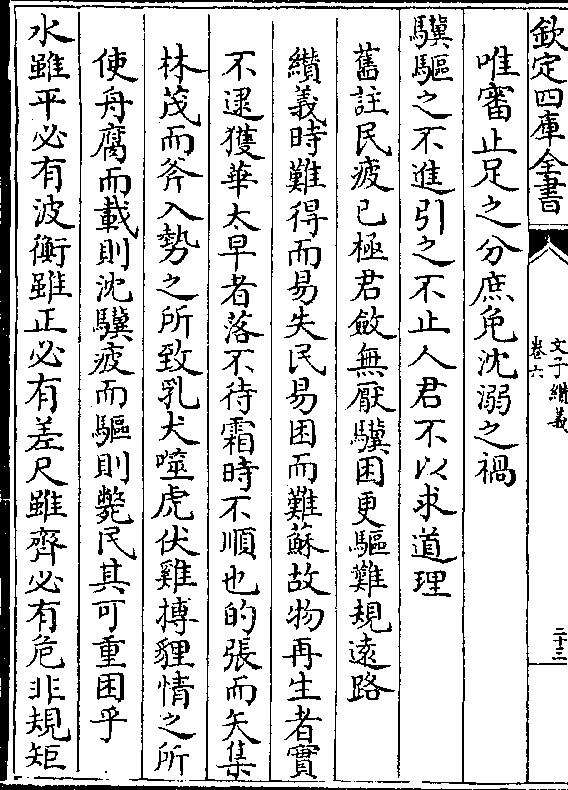 欽定四庫全書
文子纘義
卷六
二十三
唯審止足之分庶免沈溺之禍
驥驅之不進引之不止人君不以求道理
舊註民疲已極君斂無厭驥困更驅難規遠路
纘義時難得而易失民易困而難蘇故物再生者實
不逮獲華太早者落不待霜時不順也的張而矢集
林茂而斧入勢之所致乳犬噬虎伏雞搏貍情之所
使舟腐而載則沈驥疲而驅則斃民其可重困乎
水雖平必有波衡雖正必有差尺雖齊必有危非規矩